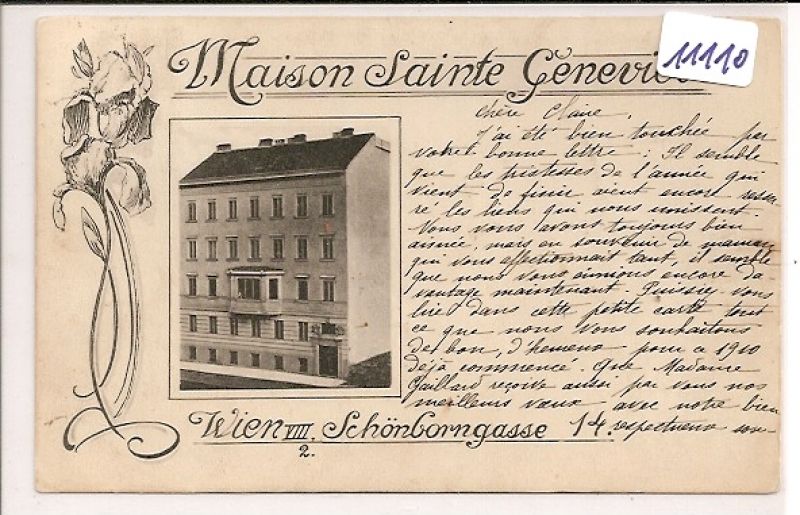 Maison Sainte Geneviè
11110
Chère Claire,
J'ai été bien touchée par
votre bonne lettre : Il semble
que les tristesses de l'année qui
vient de finir aient encore resser
ré les liens qui nous unissent.
Nous vous avons toujours bien
aimée, mais en souvenir de maman
qui vous affectionnait tant, il semble
que nous vous aimions encore da
vantage maintenant. Puissiez-vous
lire dans cette petite carte tout
ce que nous vous souhaitons
de bon, d'heureux pour ce 1910
déjà commencé. Que Madame
Gaillard reçoive aussi par vous nos
meilleurs vœux avec notre bien
respectueux sou-
Wien VIII. Schönborngasse 14.
2.